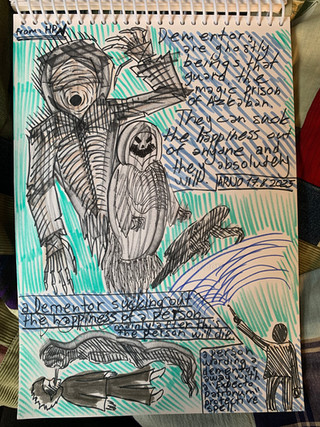 from HP
Dementors
are ghostly
beings that
guard the
magic prison
of Azkaban.
They can suck
the happiness out
of anyone and
they absolutely
will!
ARNO 17.V.2025
a Dementor sucking out
the happiness of a person
mainly after this
the person will die
a person
warding
dementors
away with
expecto
patronum
protective
spell